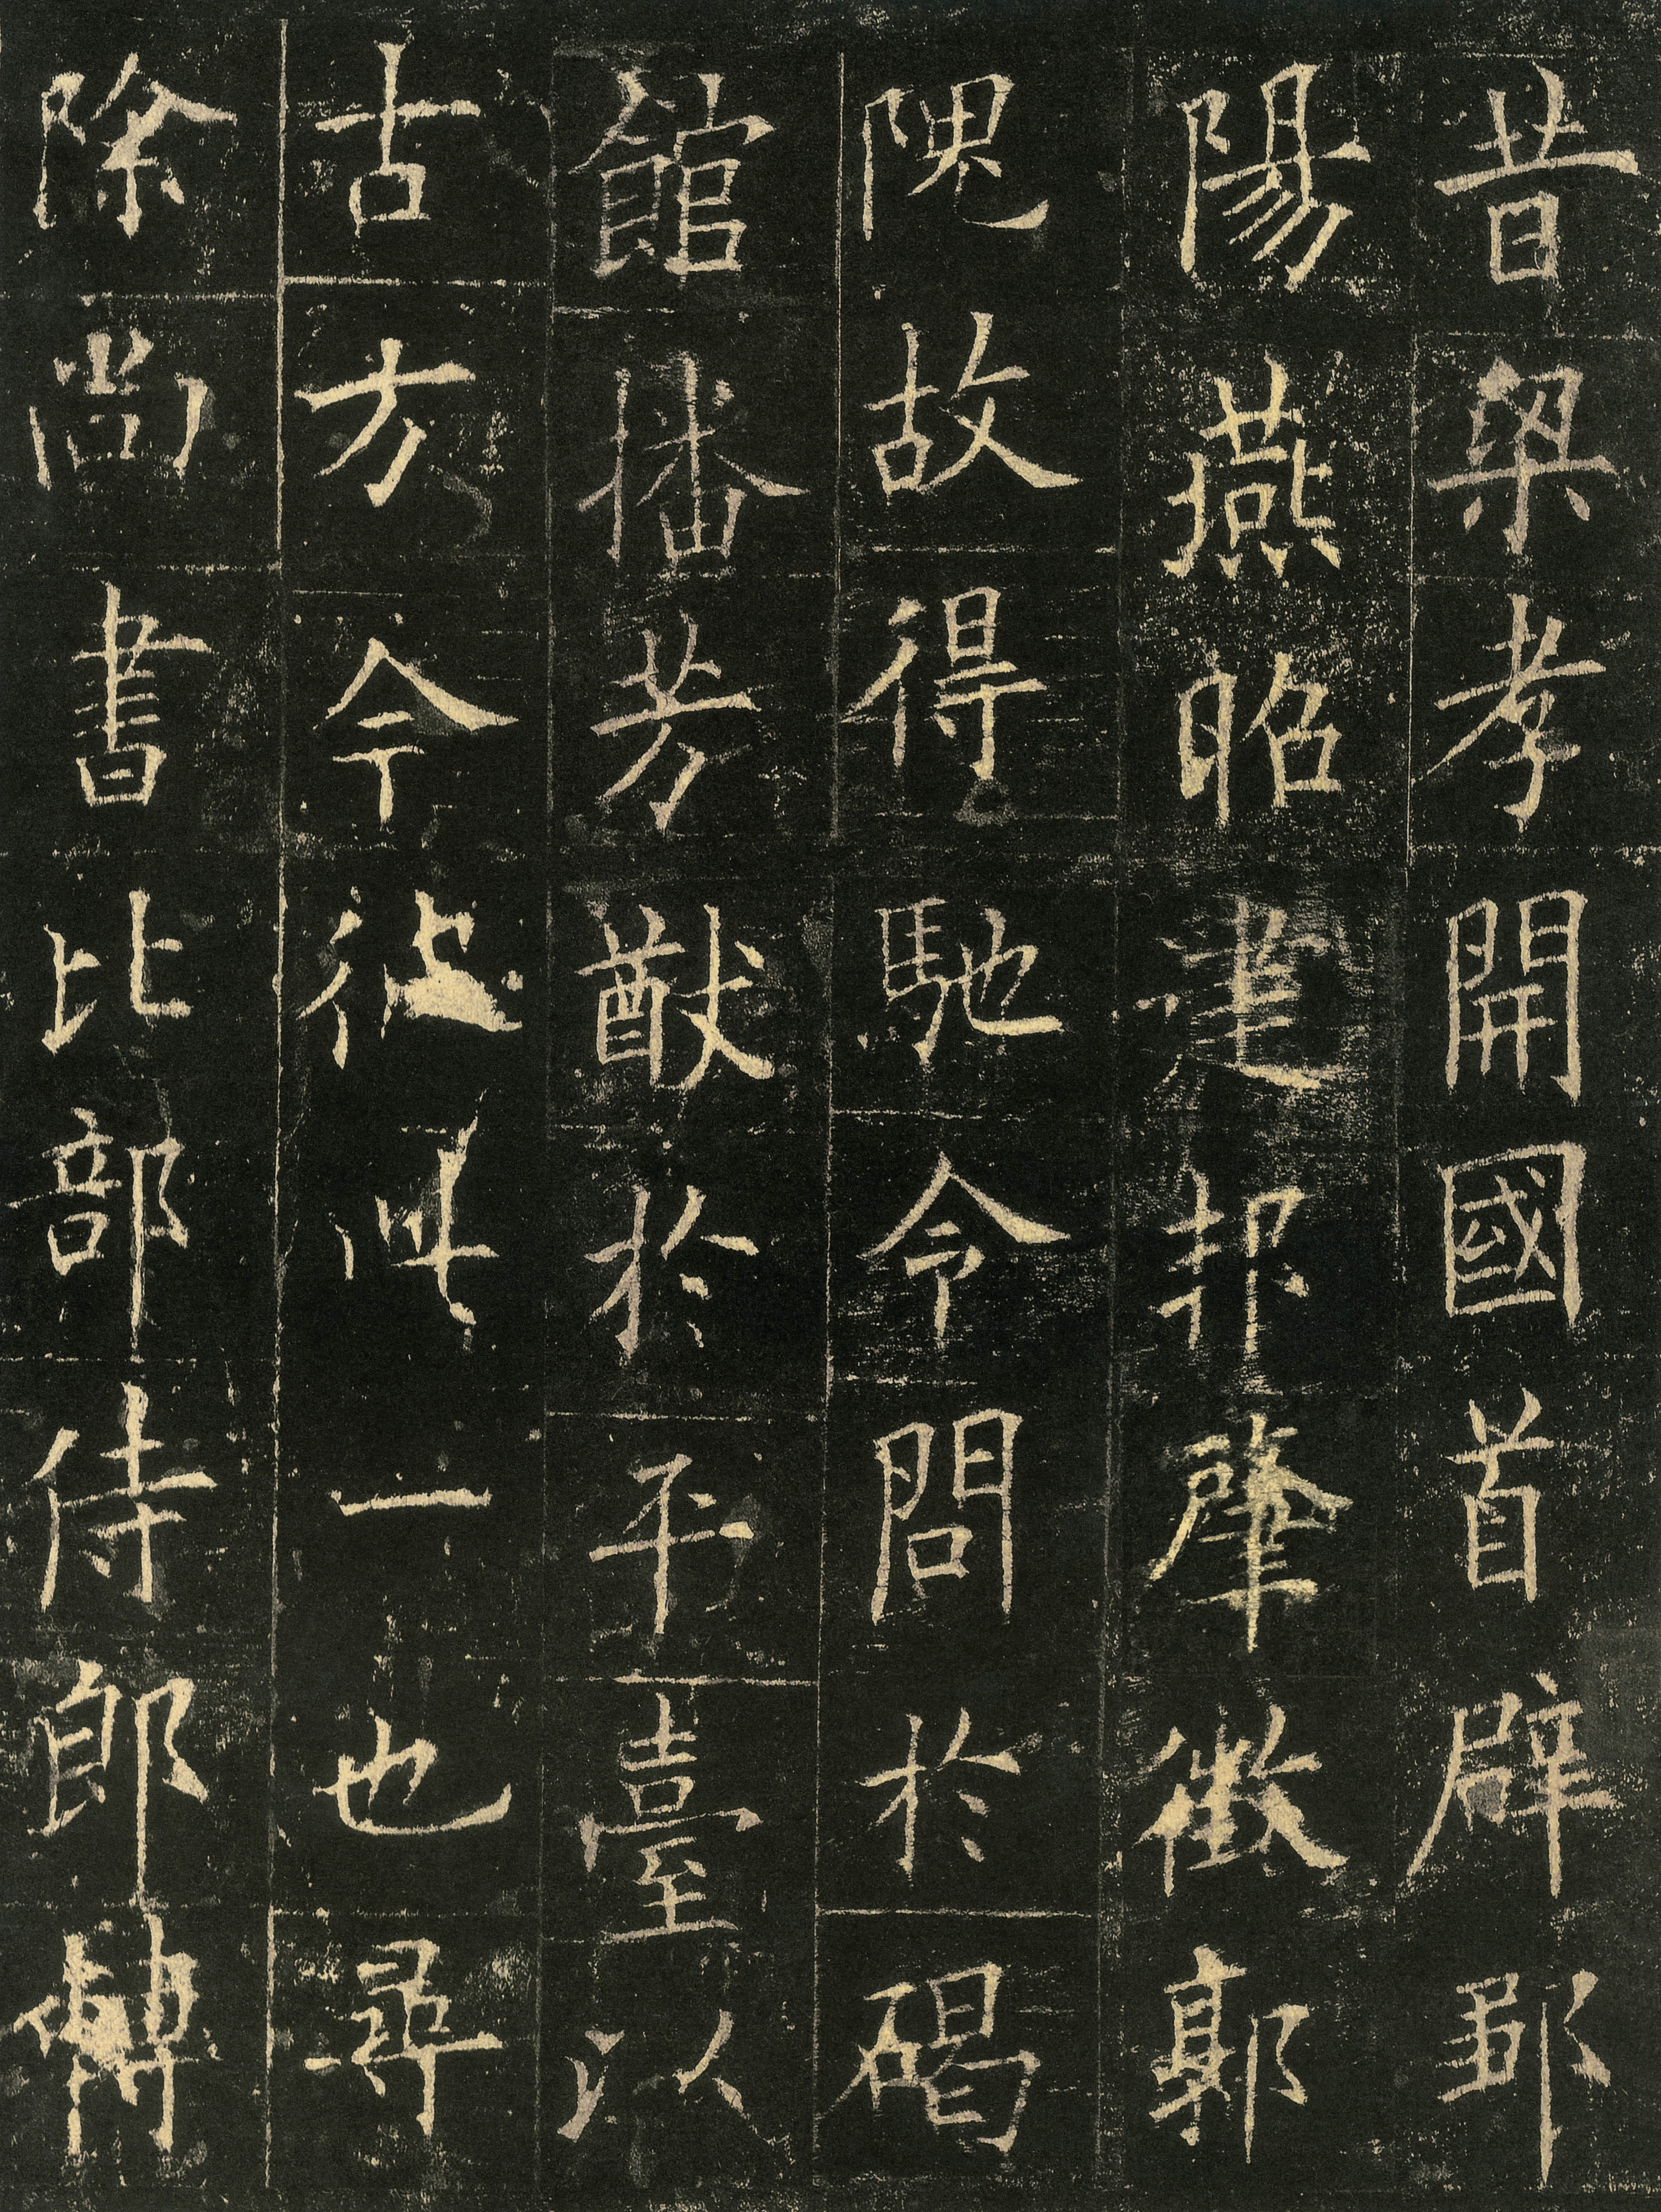 昔梁孝開國首辟鄒
陽燕昭建邦肇徵郭
隗故得馳令問於碣
館播芳猷於平臺以
古方今彼此一也尋
除尚書比部侍郎轉